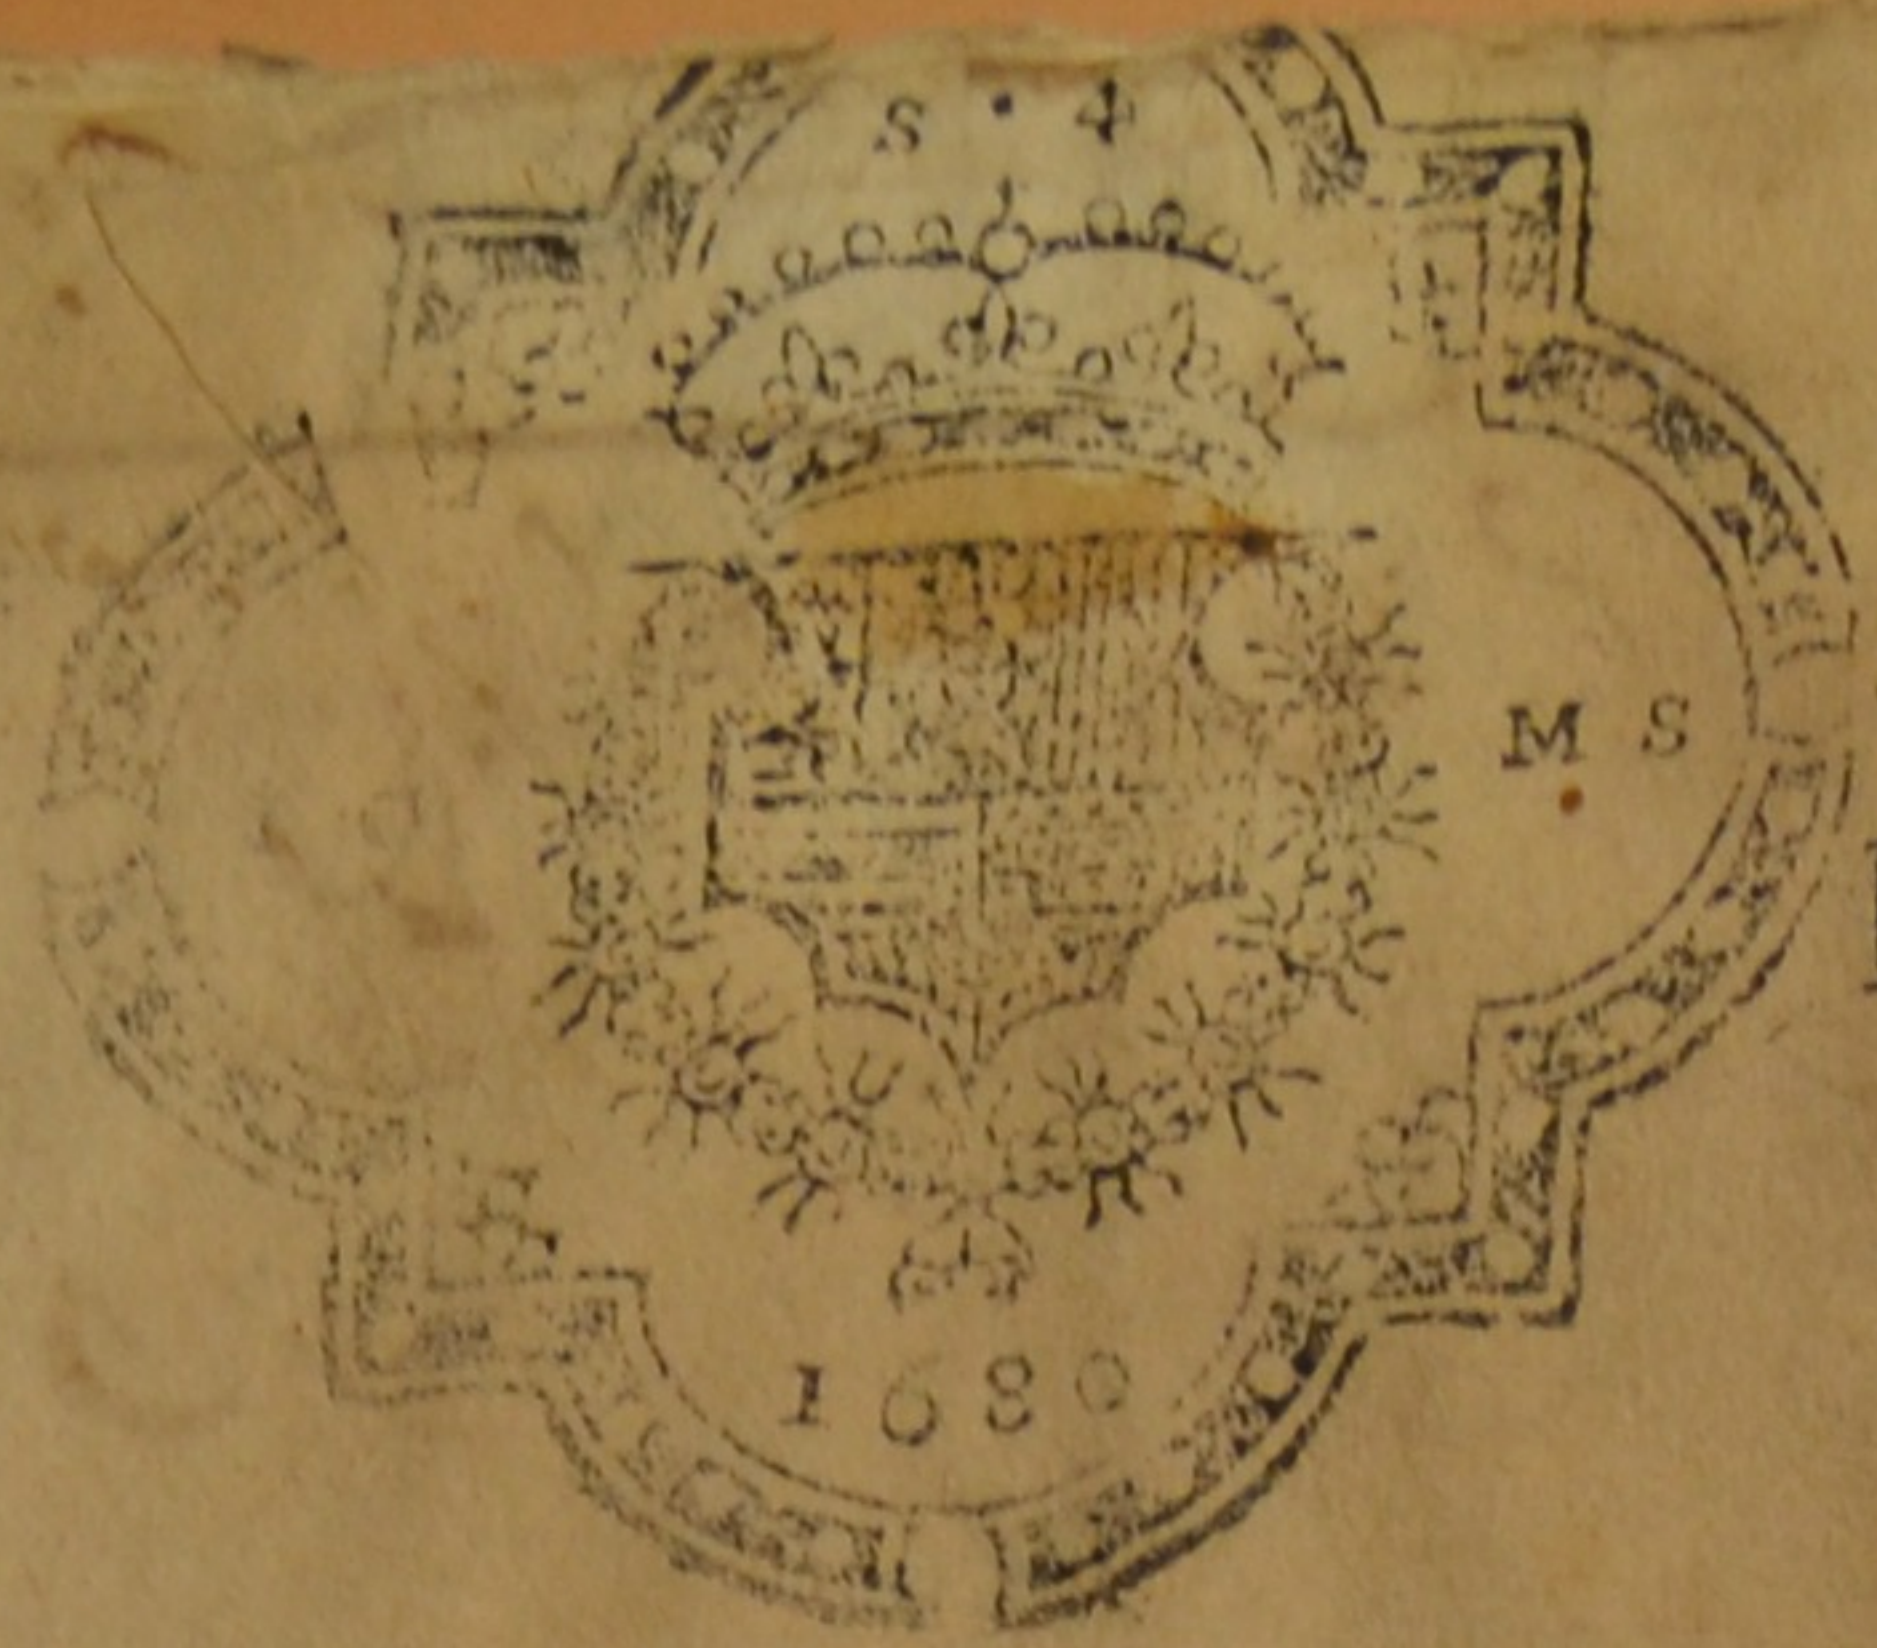 S · 4
M S
1680